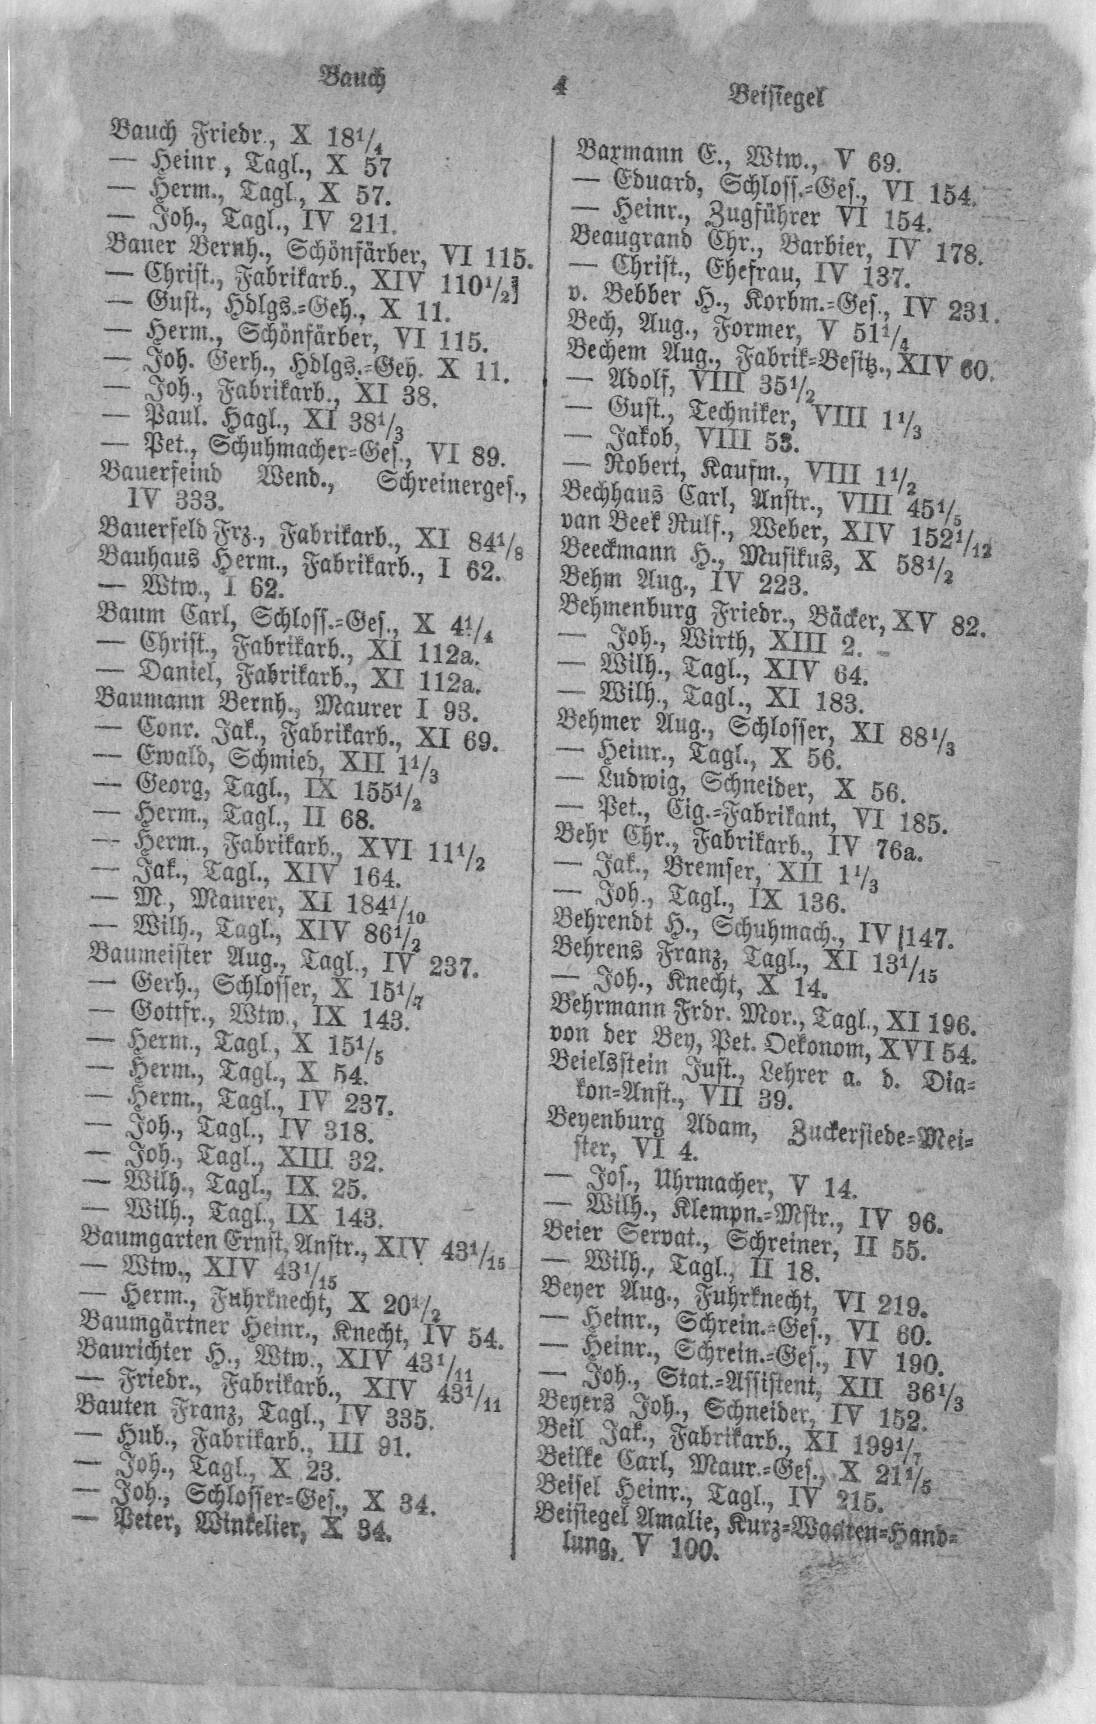 Bauch
4
Beisiegel
Bauch Friedr., X 18 1/4
— Heinr., Tagl., X 57
— Herm., Tagl., X 57.
— Joh., Tagl., IV 211.
Bauer Bernh., Schönfärber, VI 115.
— Christ., Fabrikarb., XIV 110 1/2
— Gust., Hdlgs.=Geh., X 11.
— Herm., Schönfärber, VI 115.
— Joh. Gerh., Hdlgs.=Geh. X 11.
— Joh., Fabrikarb., XI 38.
— Paul. Hagl., XI 38 1/3
— Pet., Schuhmacher=Ges., VI 89.
Bauerfeind Wend., Schreinerges.,
IV 333.
Bauerfeld Frz., Fabrikarb., XI 84 1/8
Bauhaus Herm., Fabrikarb., I 62.
— Wtw., I 62.
Baum Carl, Schloss.=Ges., X 4 1/4
— Christ., Fabrikarb., XI 112a.
— Daniel, Fabrikarb., XI 112a.
Baumann Bernh., Maurer I 93.
— Conr. Jak., Fabrikarb., XI 69.
— Ewald, Schmied, XII 1 1/3
— Georg, Tagl., IX 155 1/2
— Herm., Tagl., II 68.
— Herm., Fabrikarb., XVI 11 1/2
— Jak., Tagl., XIV 164.
— M., Maurer, XI 184 1/10
— Wilh., Tagl., XIV 86 1/2
Baumeister Aug., Tagl., IV 237.
— Gerh., Schlosser, X 15 1/7
— Gottfr., Wtw., IX 143.
— Herm., Tagl., X 15 1/5
— Herm., Tagl., X 54.
— Herm., Tagl., IV 237.
— Joh., Tagl., IV 318.
— Joh., Tagl., XIII 32.
— Wilh., Tagl., IX 25.
— Wilh., Tagl., IX 143.
Baumgarten Ernst, Anstr., XIV 43 1/15
— Wtw., XIV 43 1/15
— Herm., Fuhrknecht, X 20 1/2
Baumgärtner Heinr., Knecht, IV 54.
Baurichter H., Wtw., XIV 43 1/11
— Friedr., Fabrikarb., XIV 43 1/11
Bauten Franz, Tagl., IV 335.
— Hub., Fabrikarb., III 91.
— Joh., Tagl., X 23.
— Joh., Schlosser=Ges., X 34.
— Peter, Winkelier, X 34.
Baxmann E., Wtw., V 69.
— Eduard, Schloss.=Ges., VI 154.
— Heinr., Zugführer VI 154.
Beaugrand Chr., Barbier, IV 178.
— Christ., Ehefrau, IV 137.
v. Bebber H., Korbm.=Ges., IV 231.
Bech, Aug., Former, V 51 1/4
Bechem Aug., Fabrik=Besitz., XIV 60.
— Adolf, VIII 35 1/2
— Gust., Techniker, VIII 1 1/3
— Jakob, VIII 53.
— Robert, Kaufm., VIII 1 1/2
Bechhaus Carl, Anstr., VIII 45 1/5
van Beek Rulf., Weber, XIV 152 1/12
Beeckmann H., Musikus, X 58 1/2
Behm Aug., IV 223.
Behmenburg Friedr., Bäcker, XV 82.
— Joh., Wirth, XIII 2.
— Wilh., Tagl., XIV 64.
— Wilh., Tagl., XI 183.
Behmer Aug., Schlosser, XI 88 1/3
— Heinr., Tagl., X 56.
— Ludwig, Schneider, X 56.
— Pet., Cig.=Fabrikant, VI 185.
Behr Chr., Fabrikarb., IV 76a.
— Jak., Bremser, XII 1 1/3
— Joh., Tagl., IX 136.
Behrendt H., Schuhmach., IV 147.
Behrens Franz, Tagl., XI 13 1/15
— Joh., Knecht, X 14.
Behrmann Frdr. Mor., Tagl., XI 196.
von der Bey, Pet. Oekonom, XVI 54.
Beielsstein Just., Lehrer a. d. Dia=
kon=Anst., VII 39.
Beyenburg Adam, Zuckersiede=Mei=
ster, VI 4.
— Jos., Uhrmacher, V 14.
— Wilh., Klempn.=Mstr., IV 96.
Beier Servat., Schreiner, II 55.
— Wilh., Tagl., II 18.
Beyer Aug., Fuhrknecht, VI 219.
— Heinr., Schrein.=Ges., VI 60.
— Heinr., Schrein.=Ges., IV 190.
— Joh., Stat.=Assistent, XII 36 1/3
Beyers Joh., Schneider, IV 152.
Beil Jak., Fabrikarb., XI 199 1/7
Beilke Carl, Maur.=Ges., X 21 1/5
Beisel Heinr., Tagl., IV 215.
Beisiegel Amalie, Kurz=Waaren=Hand=
lung, V 100.